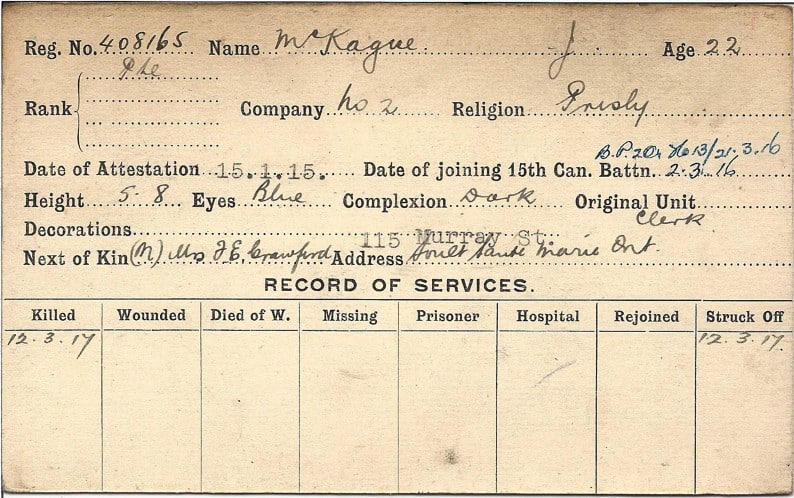 Reg. No. 408165 Name McKague J Age 22
Pte
Rank Company No 2 Religion Presby
B.P.2Or 7613/21.3.16
Date of Attestation 15.1.15. Date of joining 15th Can. Battn. 2.3.16
Height 5-8 Eyes Blue Complexion Dark Original Unit
Clerk
Decorations 115 Murray St.
Next of Kin (M) Mrs F.E. Crawford Address Soult Sante Marie Ont.
RECORD OF SERVICES.
Killed Wounded Died of W. Missing Prisoner Hospital Rejoined Struck Off
12.3.17 12.3.17.